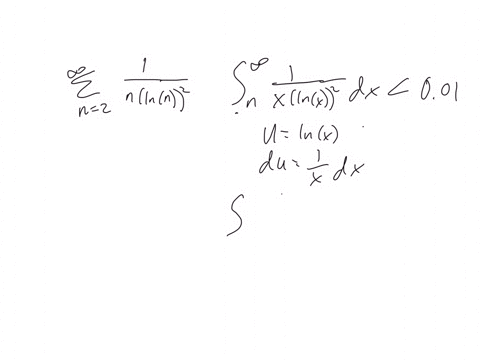 ∞∑n=2 1/(n(ln(n))² ∫n^∞ 1/(x(ln(x))² dx < 0.01
u = ln(x)
du = 1/x dx
∫